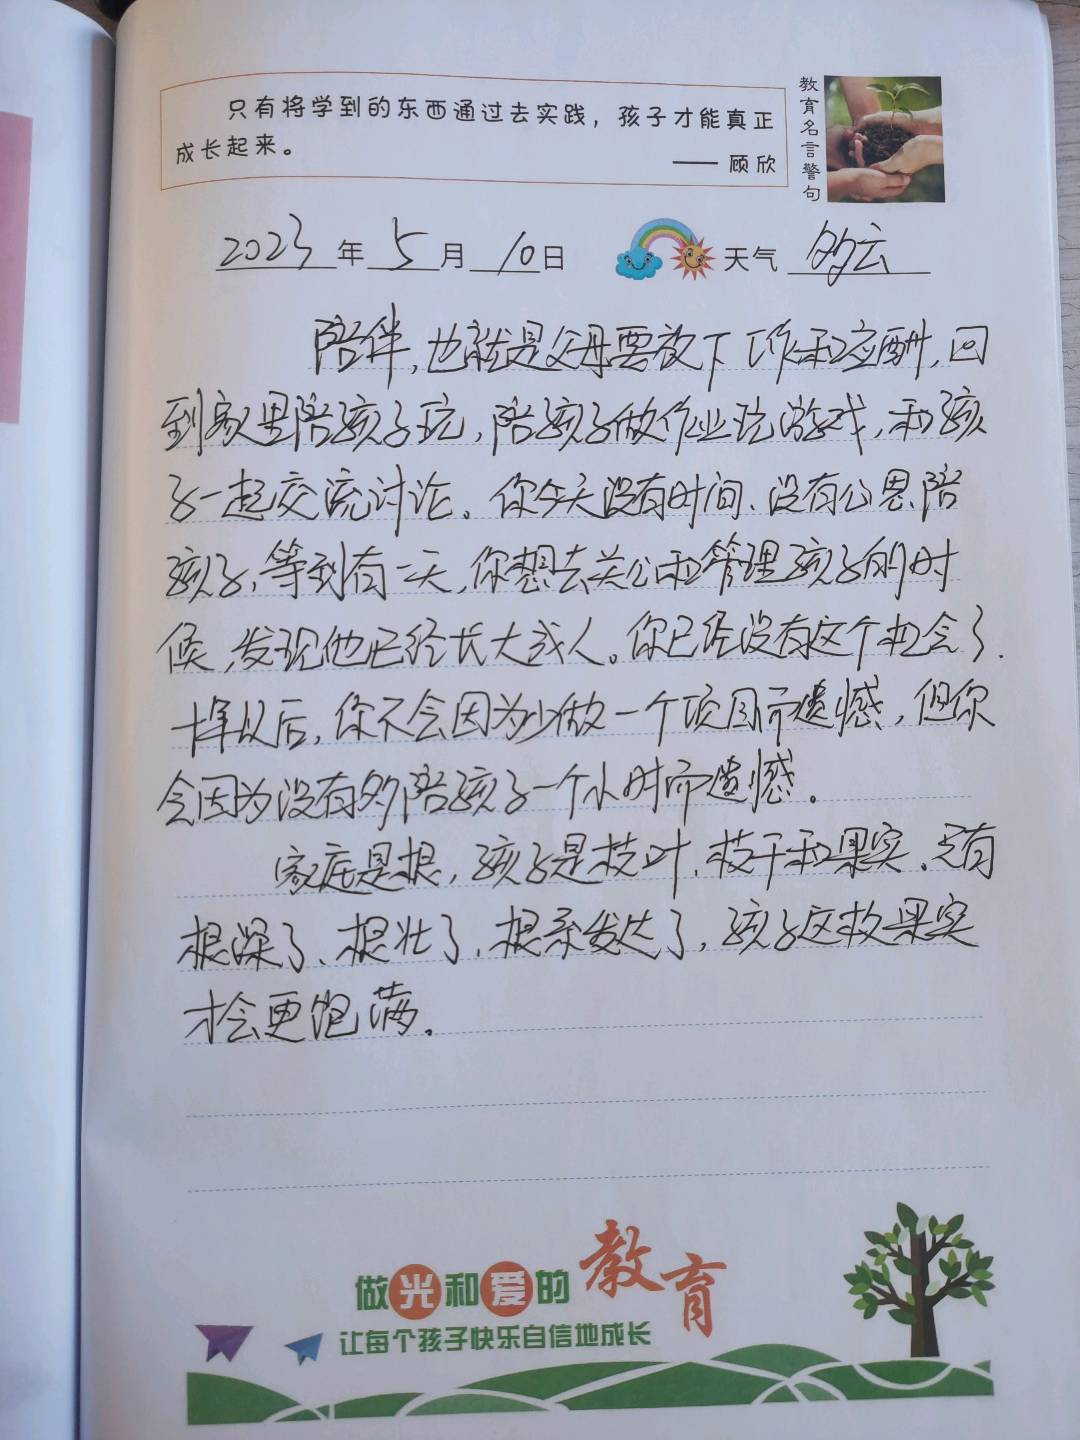 只有将学到的东西通过去实践，孩子才能真正
成长起来。
—— 顾欣
教育名言警句
2023年5月10日 天气 多云
陪伴，也就是父母要放下工作和应酬，回
到家里陪孩子玩，陪孩子做作业玩游戏，和孩
子一起交流讨论。你今天没有时间、没有心思陪
孩子，等到有一天，你想去关心和管理孩子的时
候，发现他已经长大成人。你已经没有这个机会了.
十年以后，你不会因为少做一个项目而遗憾，但你
会因为没有多陪孩子一个小时而遗憾。
家庭是根，孩子是枝叶、枝干和果实。只有
根深了、根壮了、根系发达了，孩子这枚果实
才会更饱满。
做光和爱的教育
让每个孩子快乐自信地成长